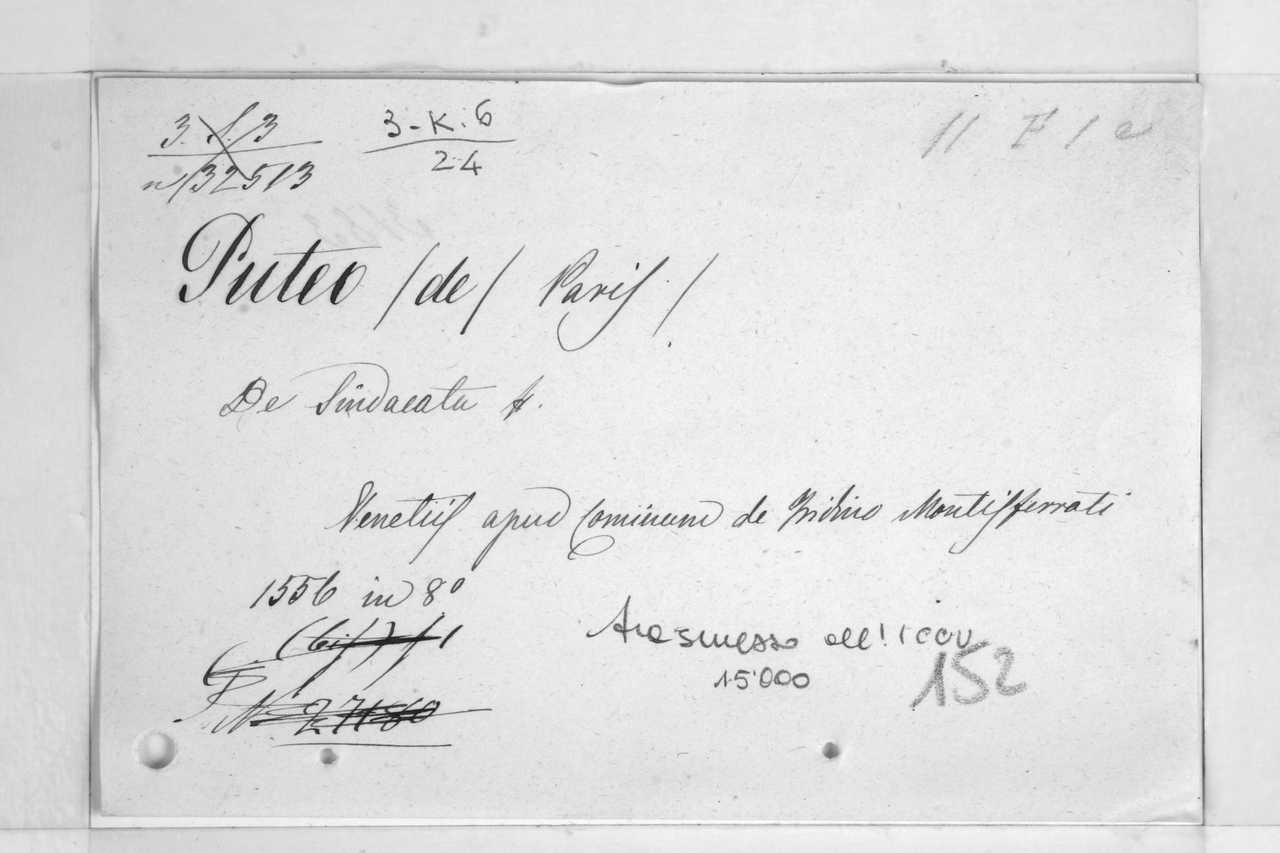 3. f. 3
n/32513
3-K.6
24
11 F 1 e
Puteo (de) Paris.
De Sindacatu &.
Venetiis apud Cominum de Tridino Montisferrati
1556 in 8°
(bis) 7) f 1
Trasmesso all'ICCU
15'000
152
N. 27180